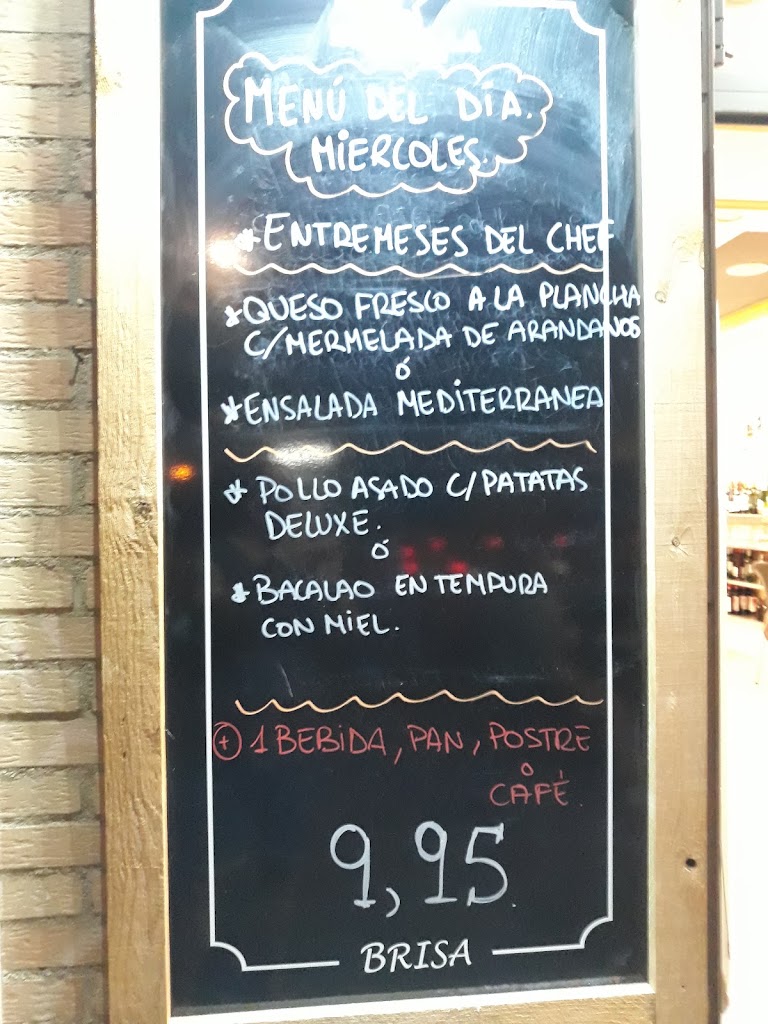 MENÚ DEL DÍA.
MIERCOLES.
* ENTREMESES DEL CHEF
* QUESO FRESCO A LA PLANCHA
C/MERMELADA DE ARANDANOS
Ó
* ENSALADA MEDITERRANEA
* POLLO ASADO C/PATATAS
DELUXE.
Ó
* BACALAO EN TEMPURA
CON MIEL.
+ 1 BEBIDA, PAN, POSTRE
Ó
CAFÉ.
9,95
BRISA